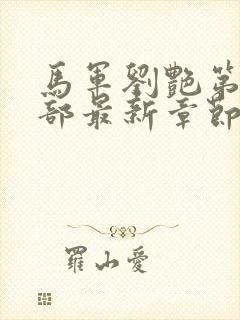 馬軍劉艷第
部最新章節
羅山愛